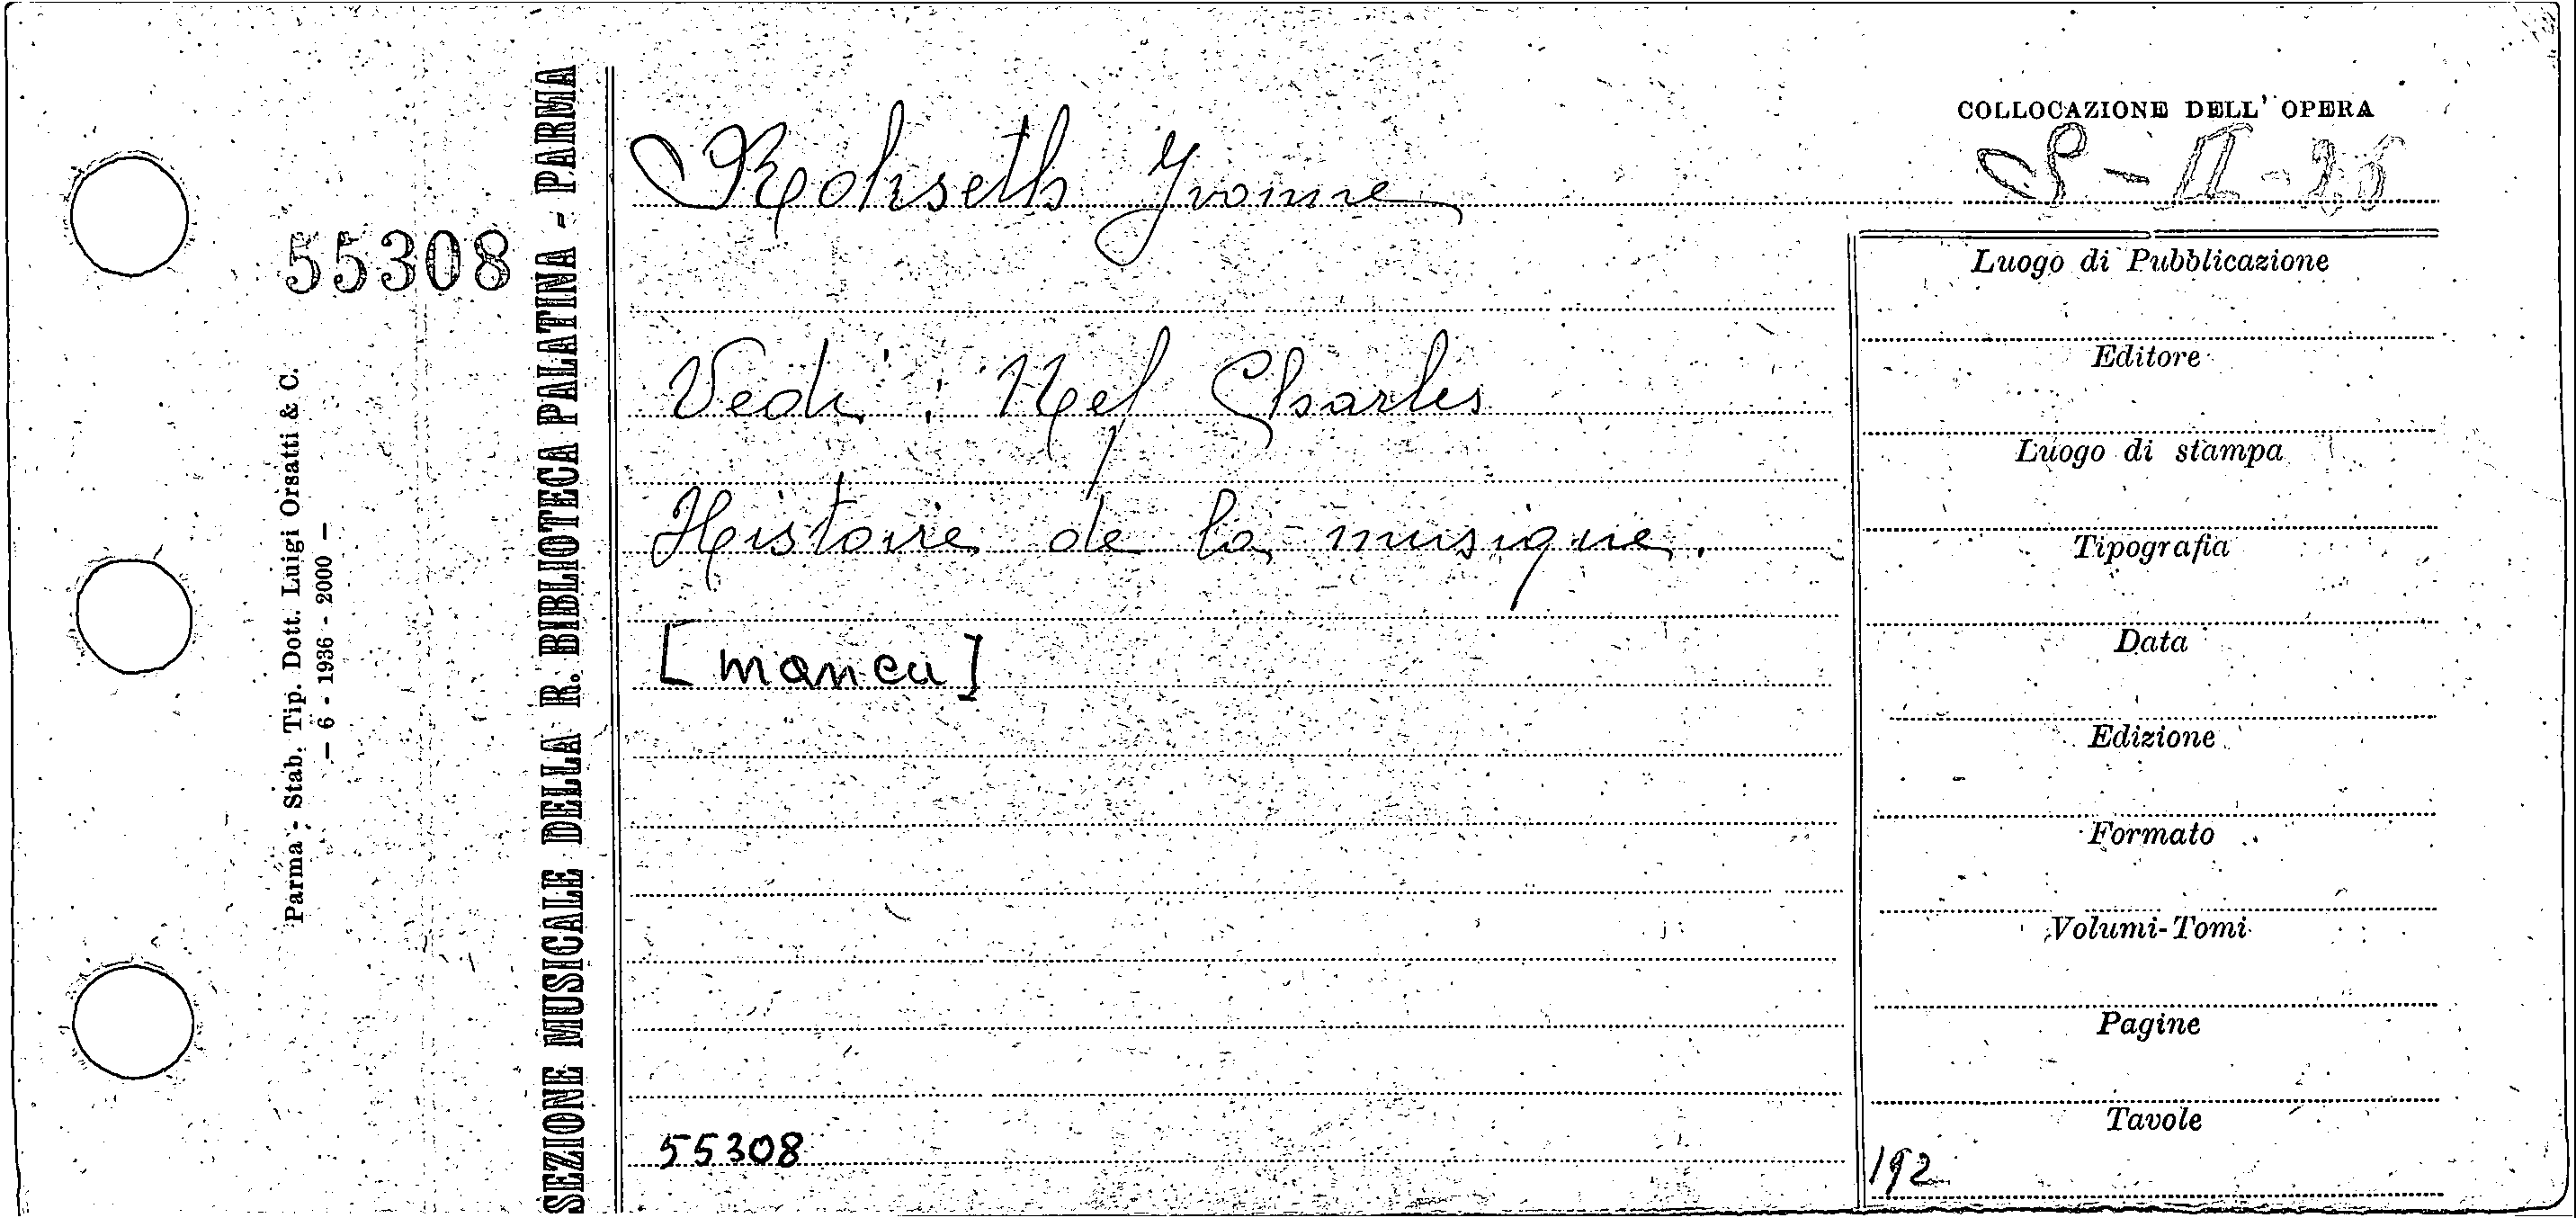 COLLOCAZIONE DELL' OPERA
Rokseth Yvonne
55308
Vedi: Nef Charles
Histoire de la musique.
[manca]
55308
Luogo di Pubblicazione
Editore
Luogo di stampa
Tipografia
Data
Edizione
Formato
Volumi-Tomi
Pagine
Tavole
192
SEZIONE MUSICALE DELLA R. BIBLIOTECA PALATINA - PARMA
Parma - Stab. Tip. Dott. Luigi Orsatti & C.
— 6 - 1936 - 2000 —